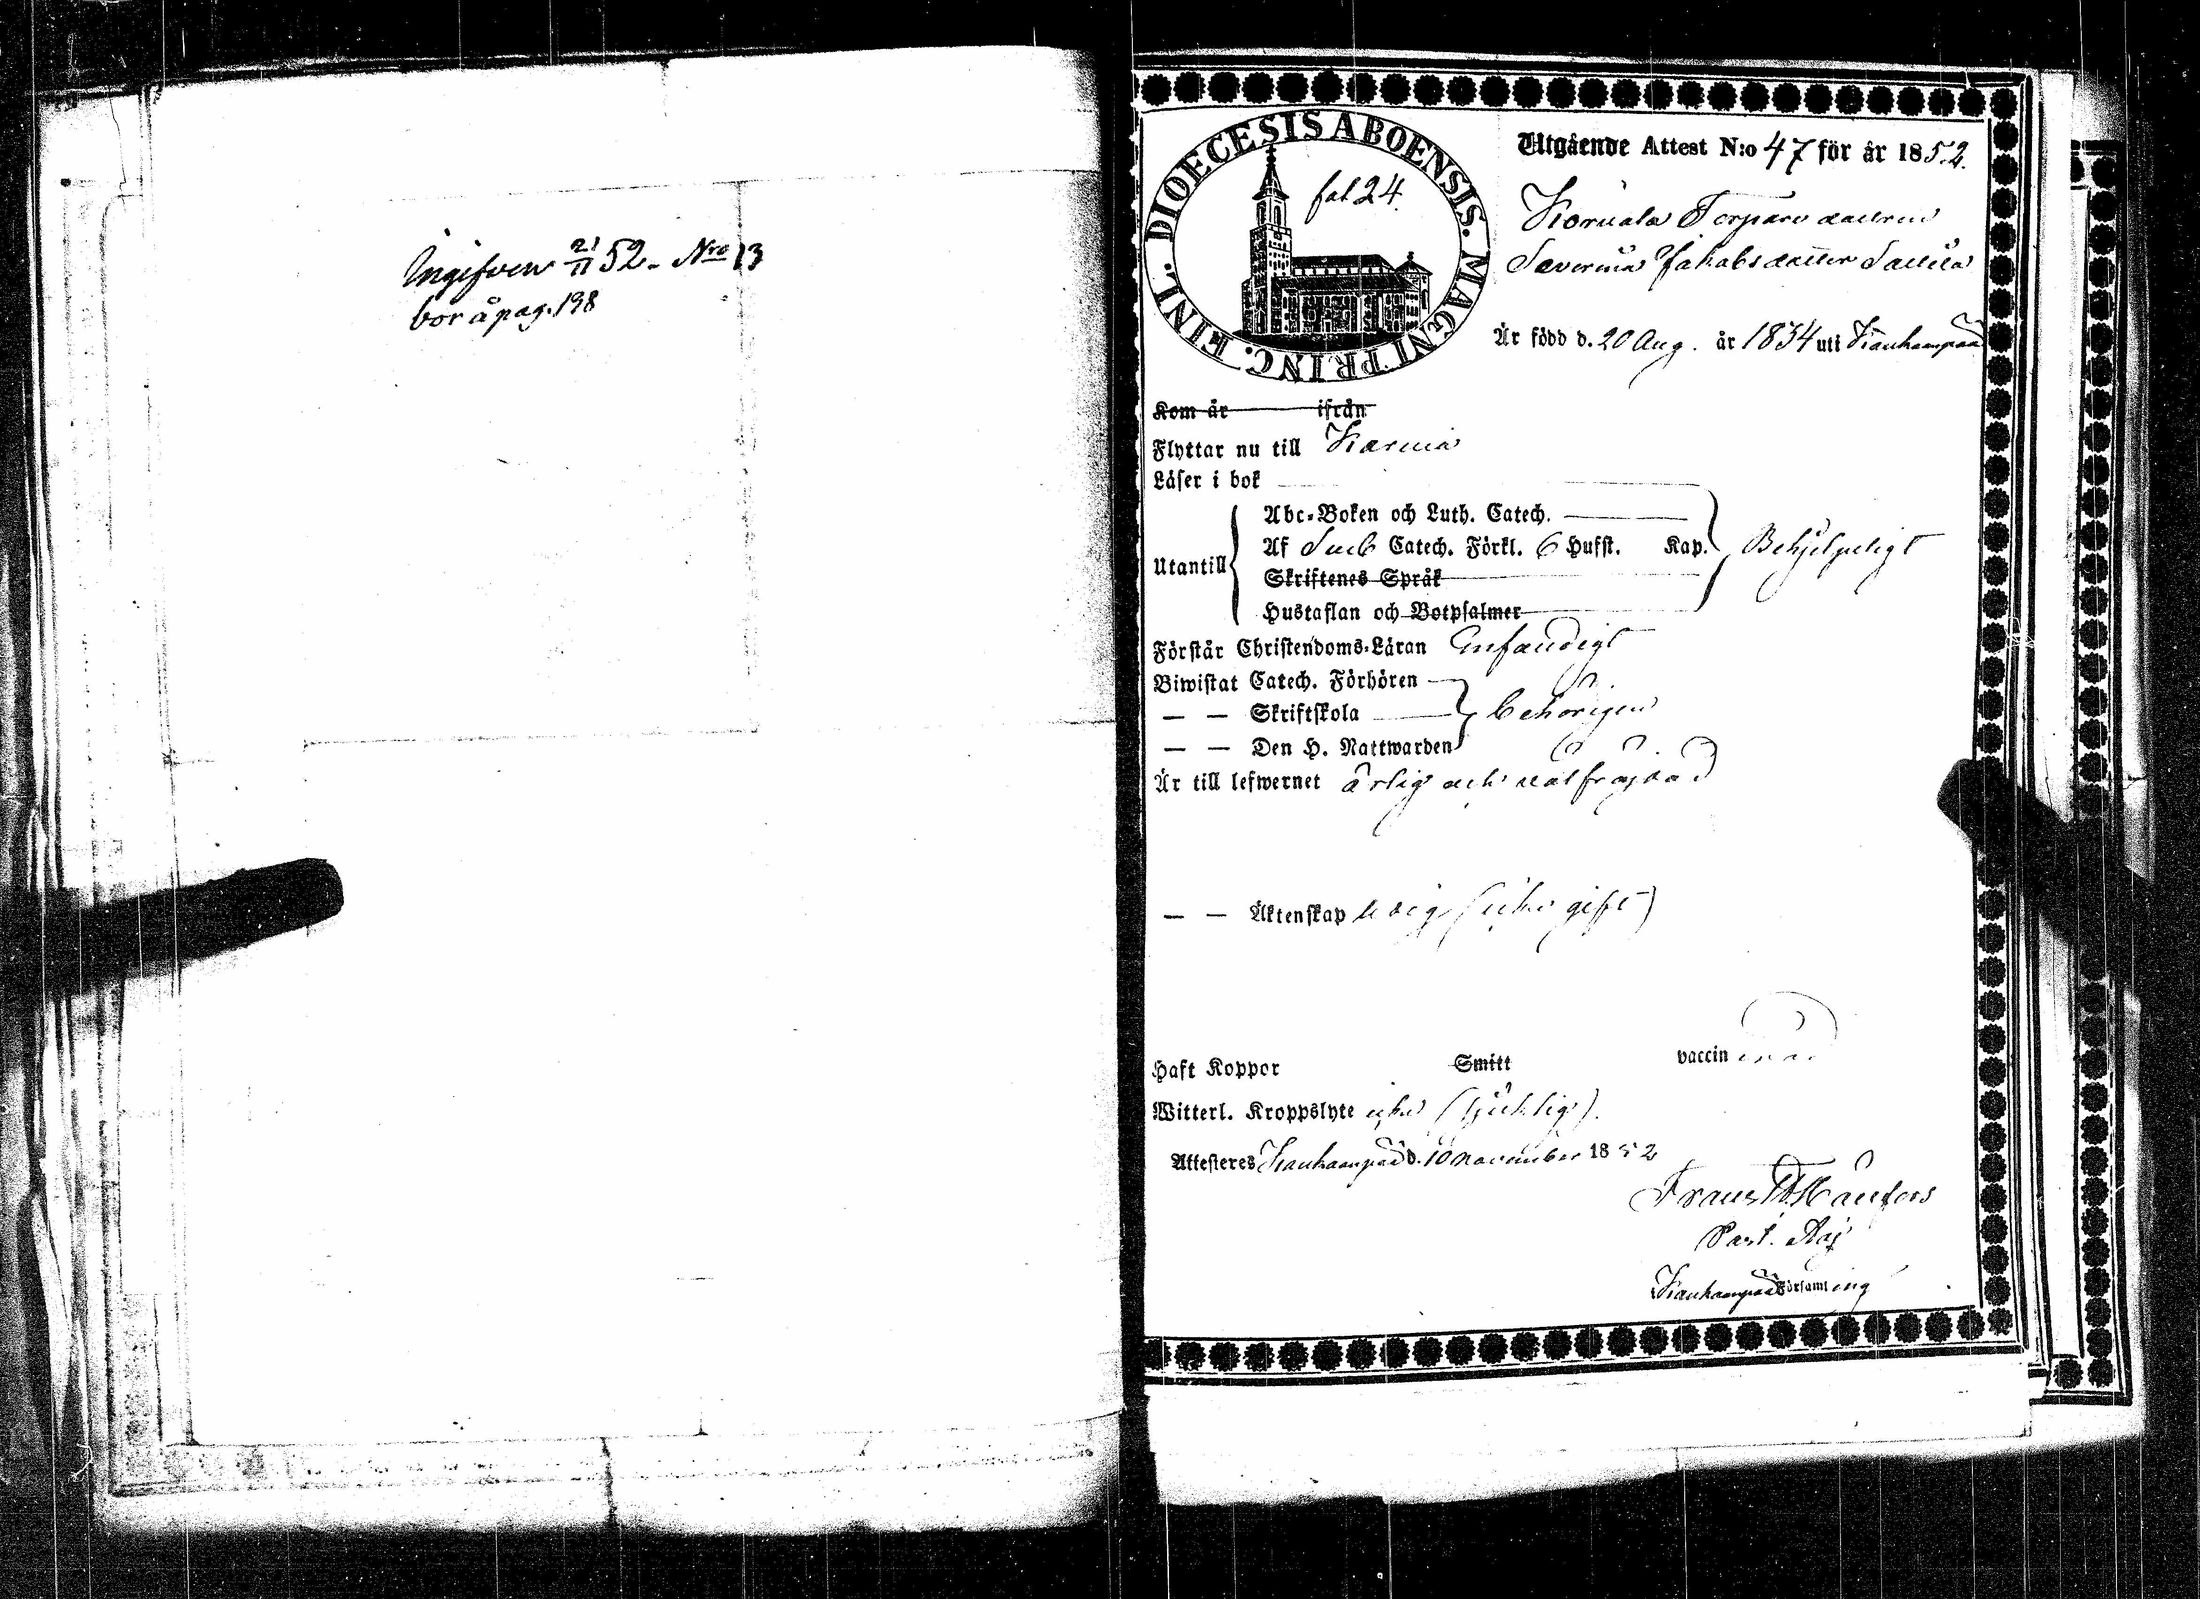 Ingifven 21/11 52. Nro 13
bor å pag. 198
FINL. DIOECESIS ABOENSIS. MAGNI PRINC.
fol 24.
Utgående Attest N:o 47 för år 1852.
Torpare dottren
Severina Jakobsdotter
Är född d. 20 Aug. år 1834 uti Kankaanpää
Kom år ifrån
Flyttar nu till Karvia
Läser i bok
Utantill
Abc-Boken och Luth. Catech.
Af Sveb Catech. Förkl. 6 Hufst. Kap.
Skriftenes Språk
Hustaflan och Botpsalmer
Behjelpeligt
Förstår Christendoms-Läran Enfaldigt
Biwistat Catech. Förhören
— — Skriftskola
— — Den H. Nattwarden
behörigen
Är till lefwernet ärlig och välfrejdad
— — Äktenskap ledig (icke gift)
Haft Koppor Smitt vaccinerad
Witterl. Kroppslyte icke
Attesteres Kankaanpää d. 10 November 1852
Frans
Past. Adj
Kankaanpää Församling